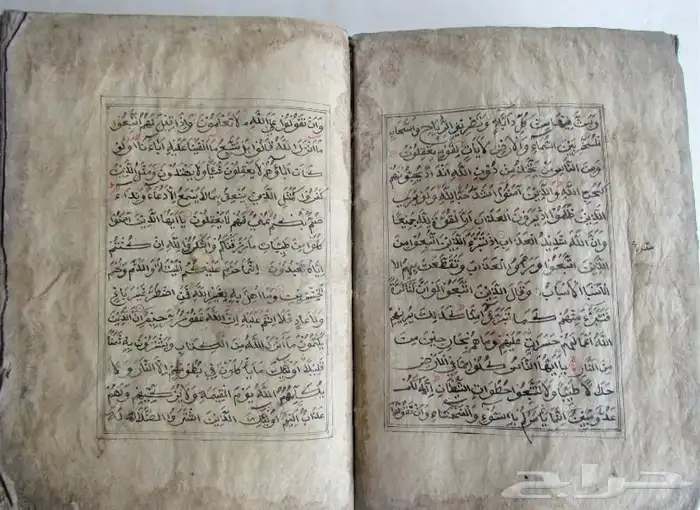 وبث فيها من كل دابة وتصريف الرياح والسحاب
المسخر بين السماء والارض لآيات لقوم يعقلون
ومن الناس من يتخذ من دون الله اندادا يحبونهم
كحب الله والذين آمنوا اشد حبا لله ولو يرى
الذين ظلموا اذ يرون العذاب ان القوة لله جميعا
وان الله شديد العذاب اذ تبرء الذين اتبعوا من
الذين اتبعوا وراوا العذاب وتقطعت بهم الا
الاسباب وقال الذين اتبعوا لو ان لنا كرة
فنتبرء منهم كما تبرءوا منا كذلك يريهم
الله اعمالهم حسرات عليهم وما هم بخارجين من
من النار يا ايها الناس كلوا مما في الارض
حللا طيبا ولا تتبعوا خطوات الشيطان انه لكم
عدو مبين انما يامركم بالسوء والفحشاء وان تقولوا
وان تقولوا على الله ما لا تعلمون واذا قيل لهم اتبعوا
ما انزل الله قالوا بل نتبع ما الفينا عليه آباءنا اولو
كان آباؤهم لا يعقلون شيئا ولا يهتدون ومثل الذين
كفروا كمثل الذي ينعق بما لا يسمع الا دعاء ونداء
صم بكم عمي فهم لا يعقلون يا ايها الذين آمنوا
كلوا من طيبات ما رزقناكم واشكروا لله ان كنتم
اياه تعبدون انما حرم عليكم الميتة والدم ولحم
الخنزير وما اهل به لغير الله فمن اضطر غير باغ
ولا عاد فلا اثم عليه ان الله غفور رحيم ان الذين
يكتمون ما انزل الله من الكتاب ويشترون به ثمنا
قليلا اولئك ما ياكلون في بطونهم الا النار ولا
يكلمهم الله يوم القيمة ولا يزكيهم ولهم
عذاب اليم اولئك الذين اشتروا الضللة
حراج